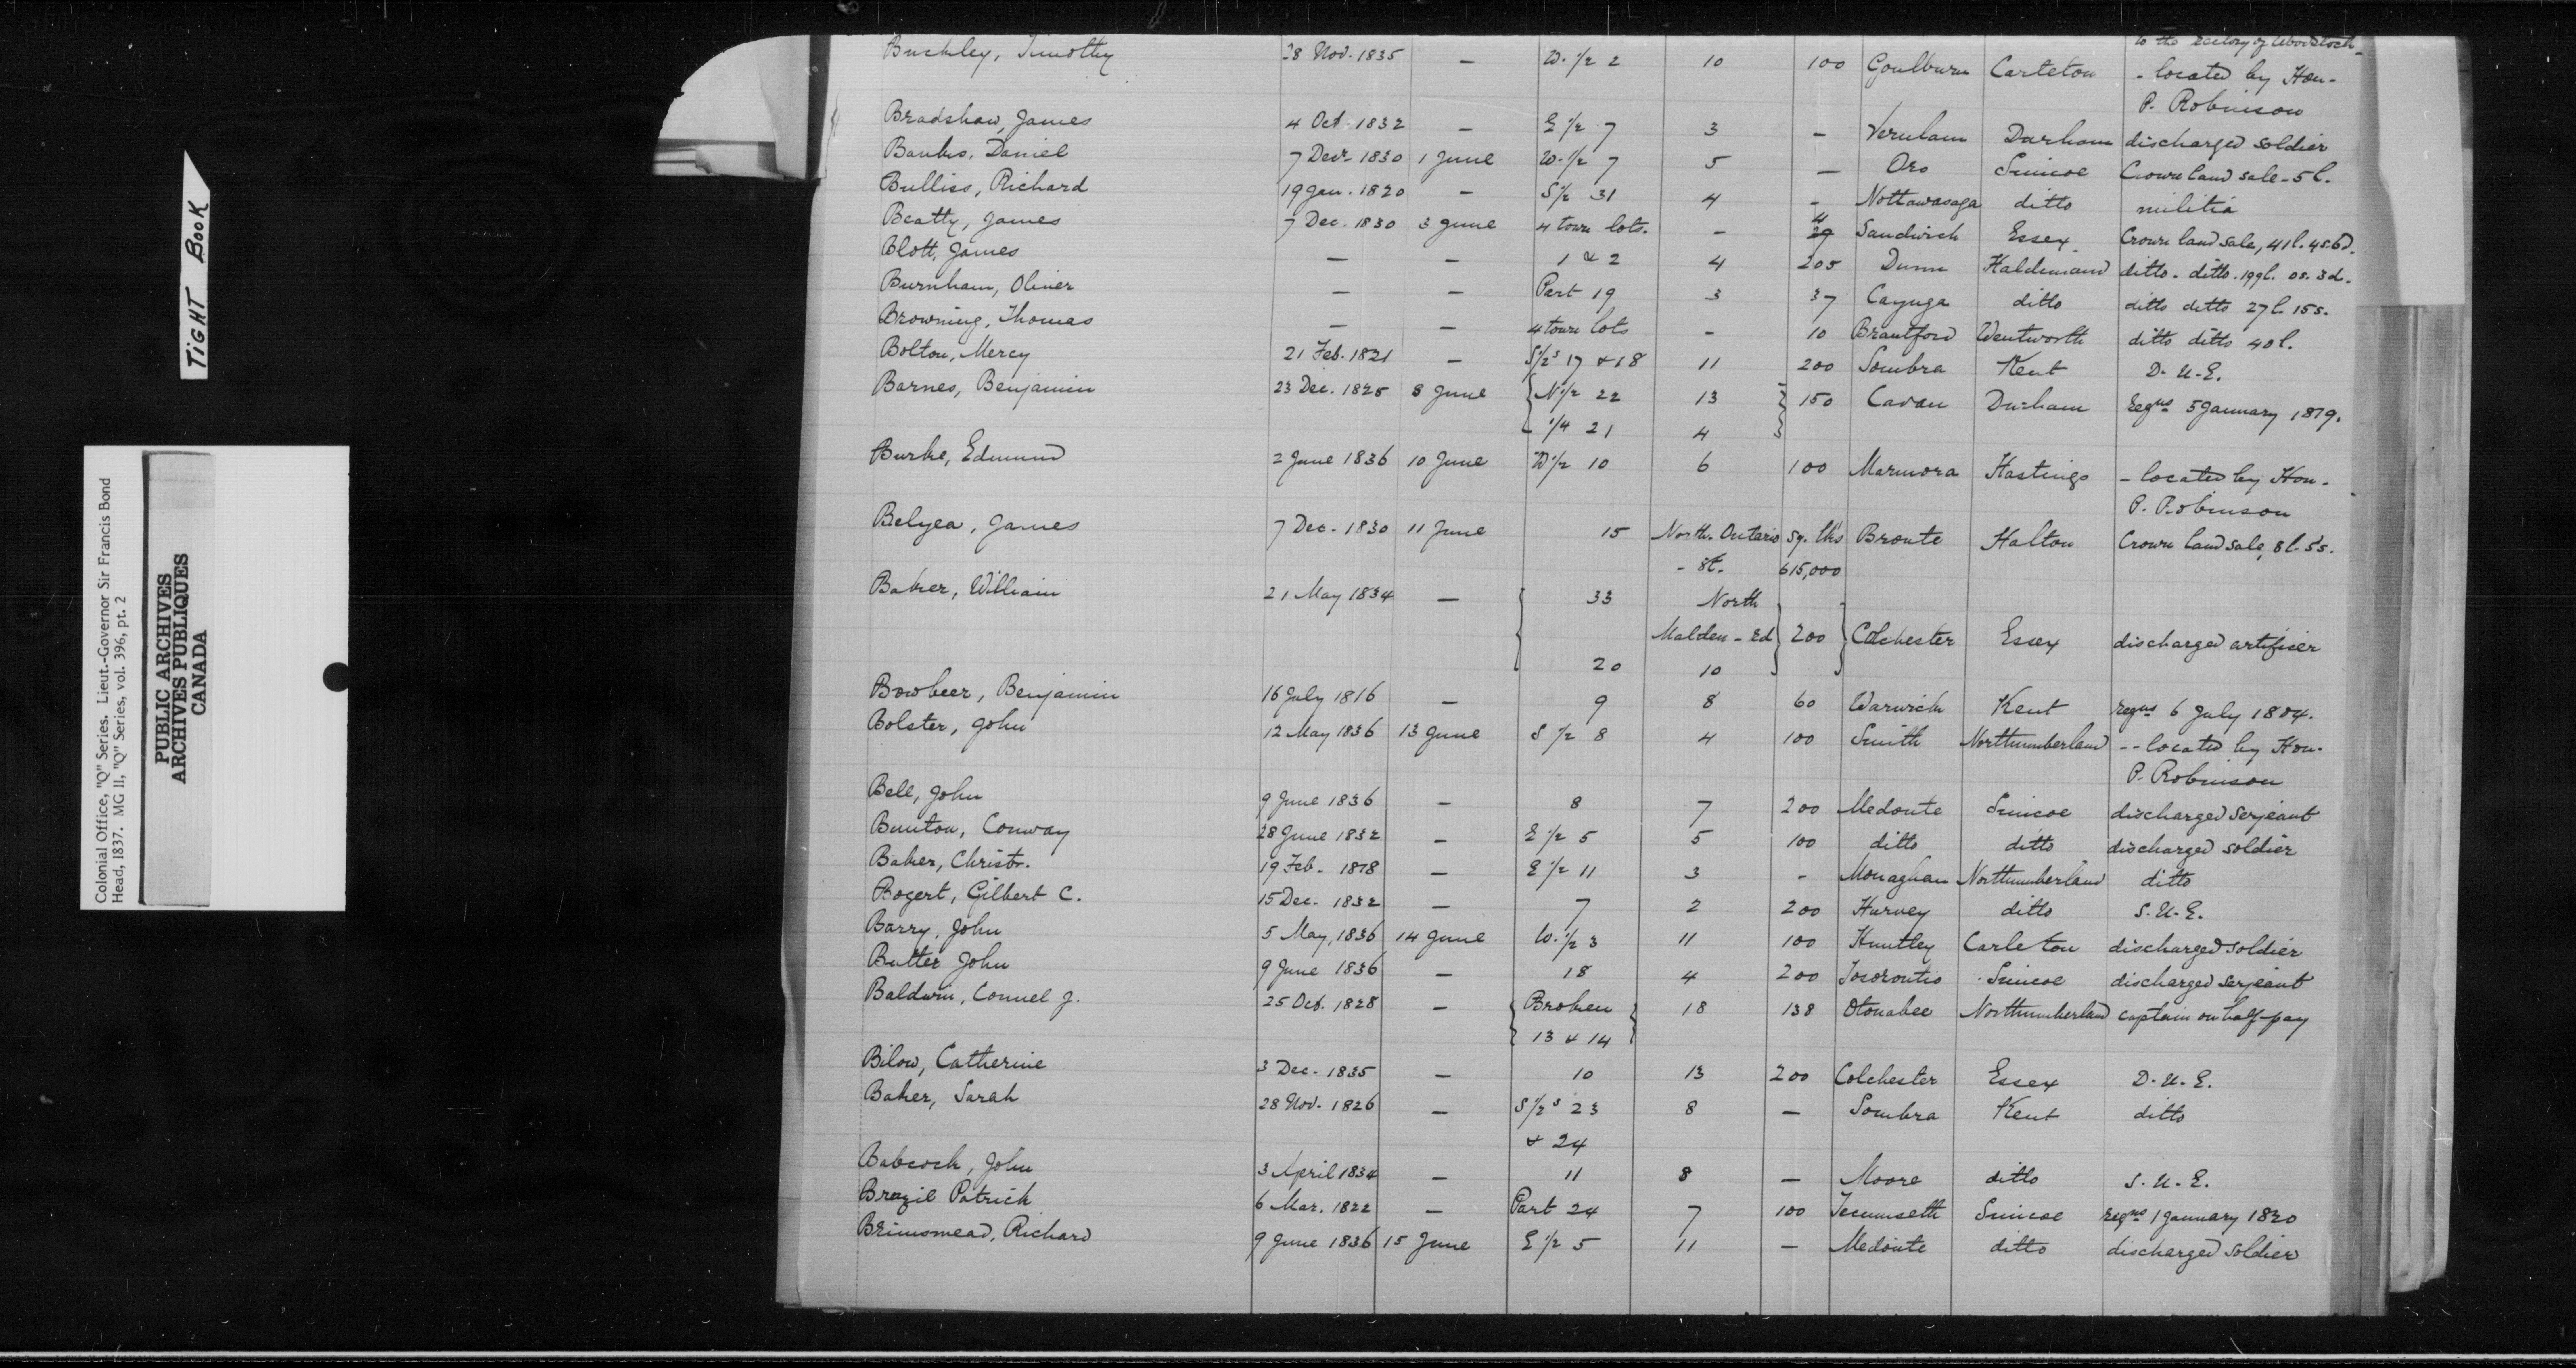 TIGHT BOOK
Colonial Office, "Q" Series. Lieut.-Governor Sir Francis Bond
Head, 1837. MG 11, "Q" Series, vol. 396, pt. 2
PUBLIC ARCHIVES
ARCHIVES PUBLIQUES
CANADA
to the Rectory of Woodstock
Buckley, Timothy 28 Nov. 1835 — W. 1/2 2 10 100 Goulburn Carleton - located by Hon.
P. Robinson
Bradshaw, James 4 Oct. 1832 — E 1/2 7 3 — Verulam Durham discharged soldier
Banks, Daniel 7 Decr 1830 1 June W. 1/2 7 5 — Oro Simcoe Crown land sale - 5 l.
Bulliss, Richard 19 Jan. 1820 — S 1/2 31 4 - Nottawasaga ditto militia
Beatty, James 7 Dec. 1830 3 June 4 town lots. - 4/29 Sandwich Essex Crown land sale, 41 l. 4s. 6d.
Blott, James — — 1 & 2 4 205 Dunn Haldimand ditto - ditto. 199 l. 0s. 3d.
Burnham, Oliver — — Part 19 3 37 Cayuga ditto ditto ditto 27 l. 15s.
Browning, Thomas — — 4 town lots - 10 Brantford Wentworth ditto ditto 40 l.
Bolton, Mercy 21 Feb. 1821 — S 1/2s 17 & 18 11 200 Sombra Kent D. U. E.
Barnes, Benjamin 23 Dec. 1825 8 June { N 1/2 22 13 } 150 Cavan Durham Regns 5 January 1819.
1/4 21 4
Burke, Edmund 2 June 1836 10 June W 1/2 10 6 100 Marmora Hastings - located by Hon.
P. Robinson
Belyea, James 7 Dec. 1830 11 June 15 North Ontario Sq. lks Bronte Halton Crown land sale, 8 l. 5s.
- St. 615,000
Baker, William 21 May 1834 — { 33 North
Malden - Rd } 200 } Colchester Essex discharged artificer
20 10
Bowbeer, Benjamin 16 July 1816 — 9 8 60 Warwick Kent regns 6 July 1804.
Bolster, John 12 May 1836 13 June S 1/2 8 4 100 Smith Northumberland -- located by Hon.
P. Robinson
Bell, John 9 June 1836 — 8 7 200 Medonte Simcoe discharged serjeant
Bunton, Conway 28 June 1832 — E 1/2 5 5 100 ditto ditto discharged soldier
Baker, Christr. 19 Feb. 1818 — E 1/2 11 3 - Monaghan Northumberland ditto
Bogert, Gilbert C. 15 Dec. 1832 — 7 2 200 Harvey ditto S. U. E.
Barry, John 5 May, 1836 14 June W. 1/2 3 11 100 Huntley Carleton discharged soldier
Butter John 9 June 1836 — 18 4 200 Tosorontio Simcoe discharged serjeant
Baldwin, Connel J. 25 Oct. 1828 — { Broken } 18 138 Otonabee Northumberland captain on half-pay
13 & 14
Bilow, Catherine 3 Dec. 1835 — 10 13 200 Colchester Essex D. U. E.
Baker, Sarah 28 Nov. 1826 — S 1/2s 23 8 — Sombra Kent ditto
& 24
Babcock, John 3 April 1834 — 11 8 — Moore ditto S. U. E.
Brazil Patrick 6 Mar. 1822 — Part 24 7 100 Tecumseth Simcoe regns 1 January 1820
Brimsmead, Richard 9 June 1836 15 June E 1/2 5 11 — Medonte ditto discharged soldier